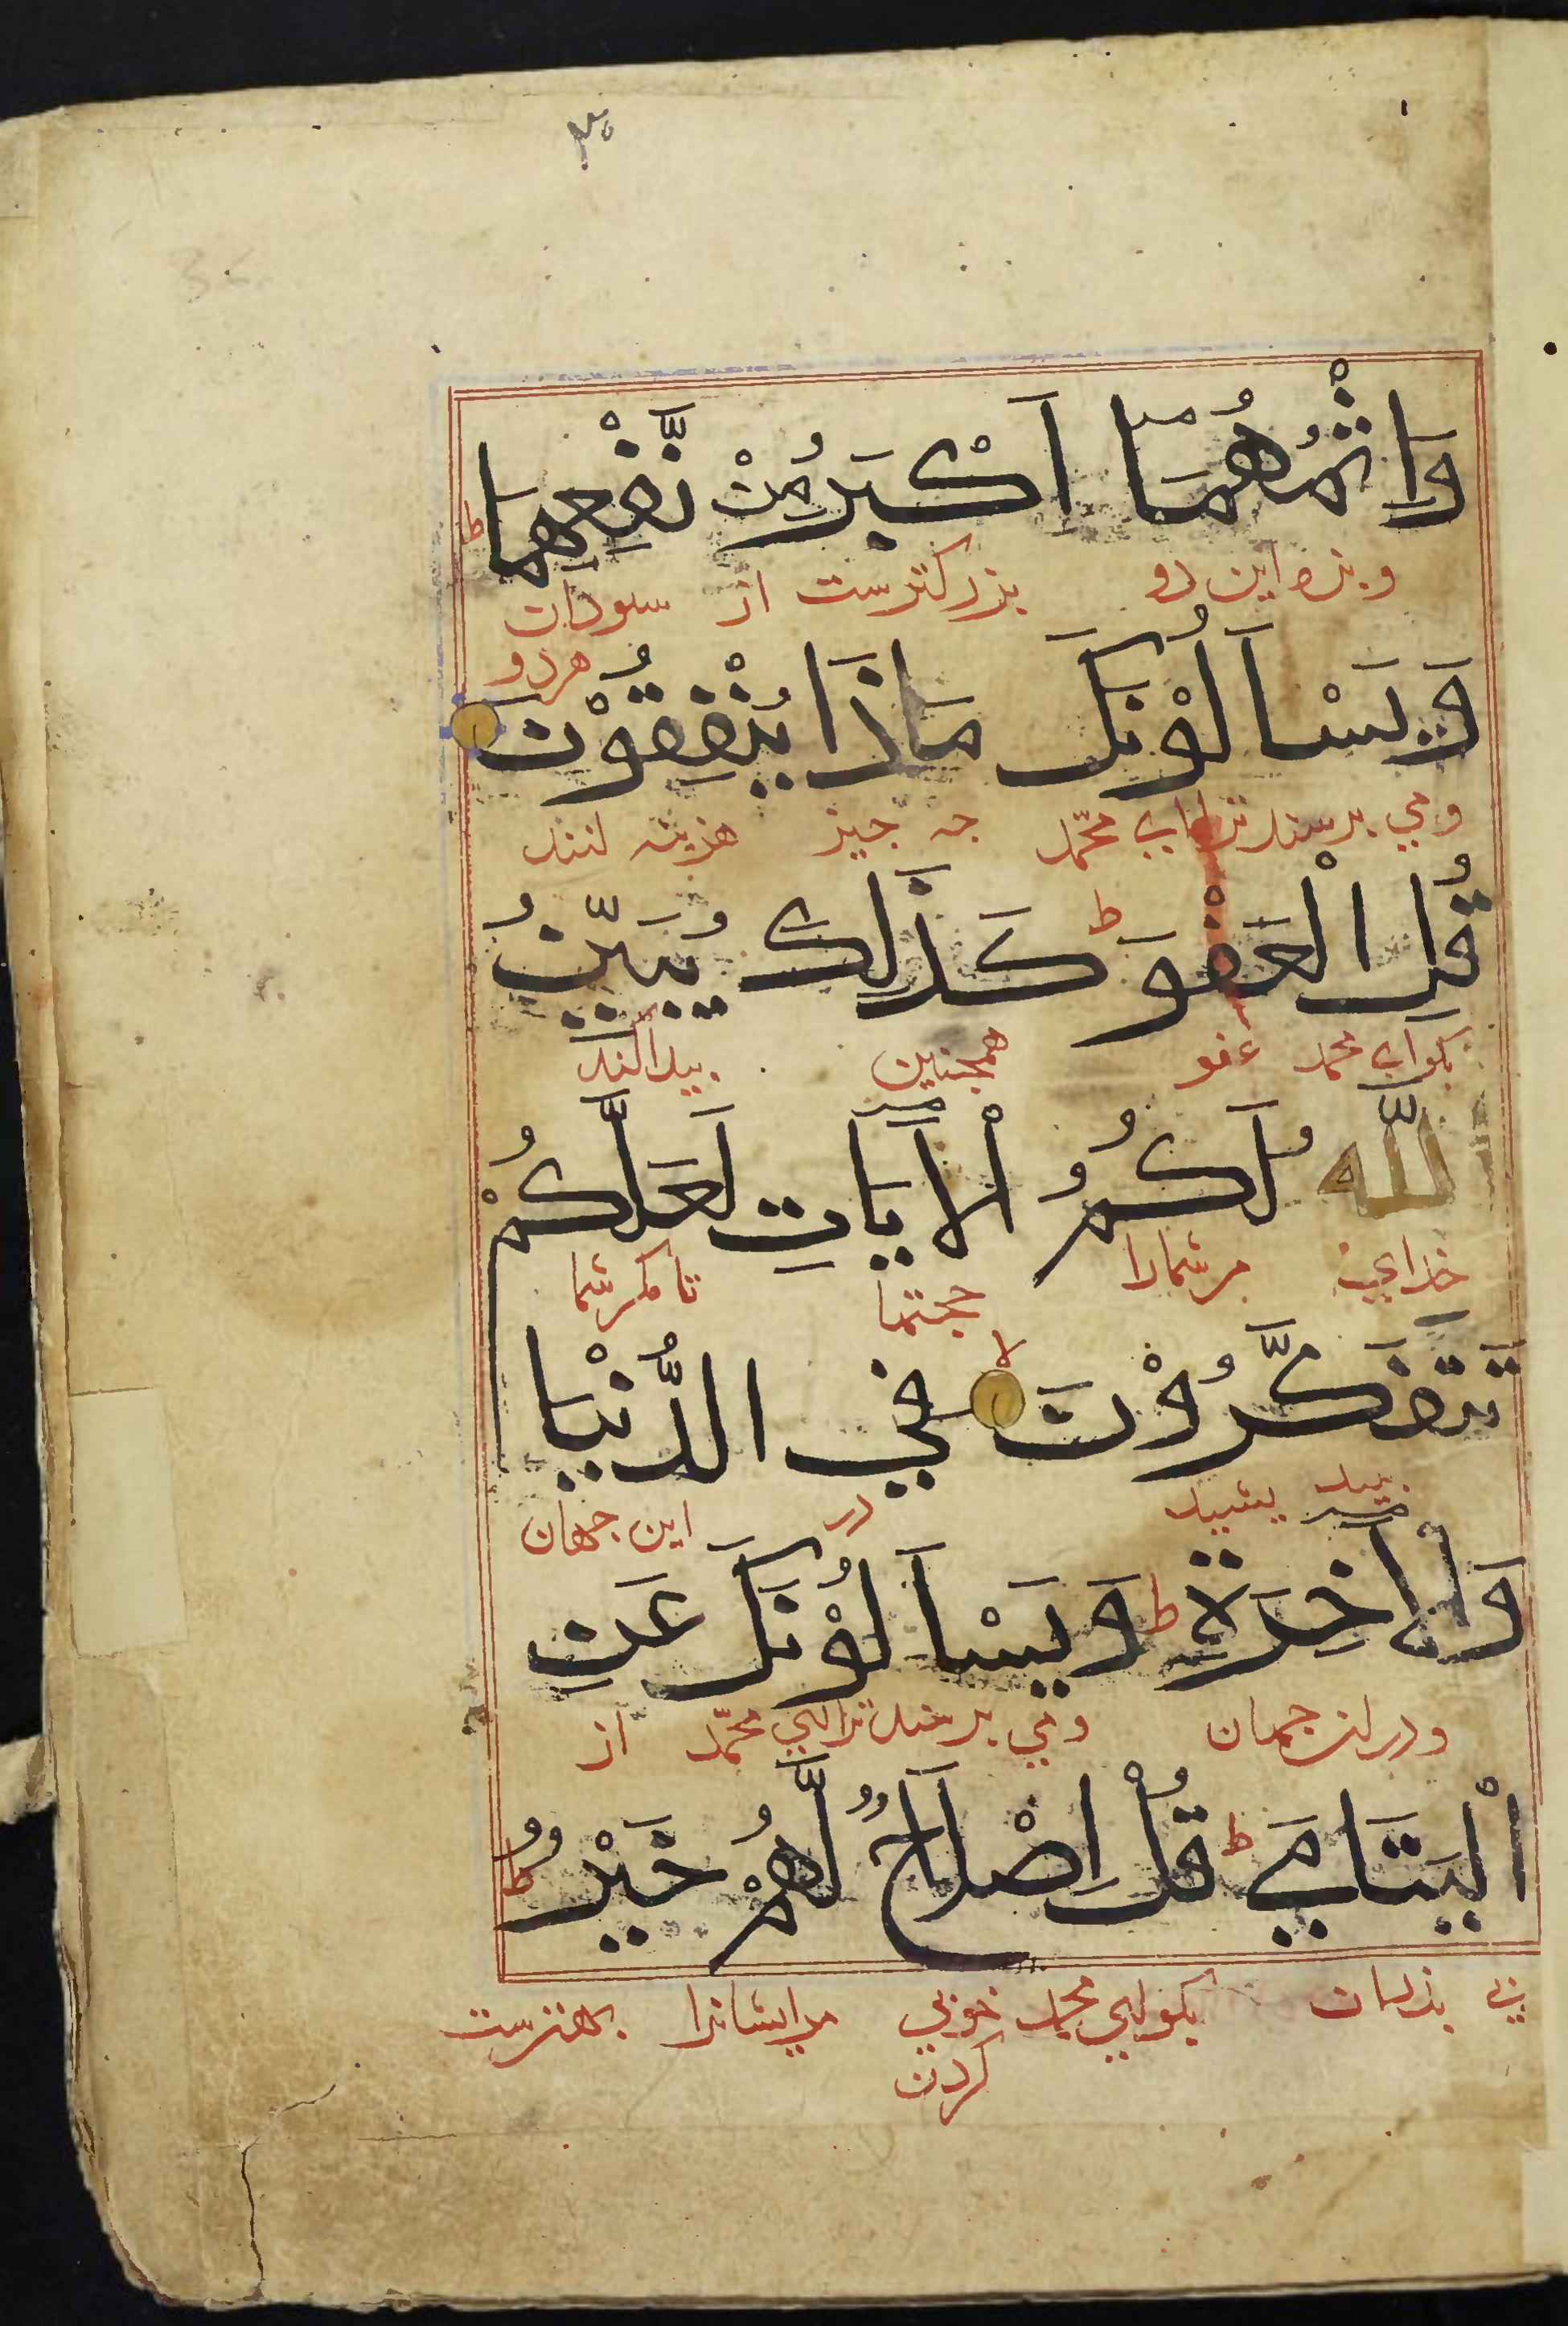 وَاِثْمُهُمَا اَكْبَرُ مِنْ نَّفْعِهِمَا ط
و بزه این دو بزرکترست از سودان
هر دو
وَيَسْاَلُوْنَكَ مَاذَا يُنْفِقُوْنَ
و می برسند ترا ای محمّد جه جیز هزینه کنند
قُلِ الْعَفْوَ ط كَذَلِكَ يُبَيِّنُ
بکو ای محمد عفو همجنین بیدا کند
اللّٰه لَكُمُ الْاَيَاتِ لَعَلَّكُمْ
خدای مر شمارا حجتها تا مکر شما
تَتَفَكَّرُوْنَ لا فِي الدُّنْيَا
بیندیشید در این جهان
وَالْاَخِرَةِ ط وَيَسْاَلُوْنَكَ عَنِ
و در ان جهان و می برسند ترا ای محمّد از
الْيَتَامَي ط قُلْ اِصْلَاحٌ لَّهُمْ خَيْرٌ ط
بی بدران بکو ای محمد خوبی مر ایشانرا بهترست
کردن